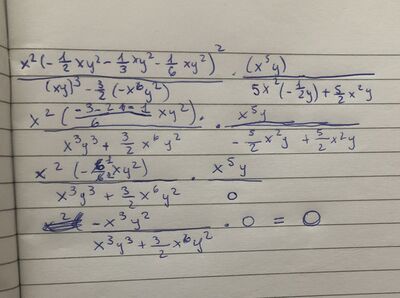 x²(-1/2 xy² - 1/3 xy² - 1/6 xy²)² / (xy)³ - 3/2 (-x⁶y²) · (x⁵y) / 5x²(-1/2 y) + 5/2 x²y
x² (-3-2-1/6 xy²)· / x³y³ + 3/2 x⁶y² · x⁵y / -5/2 x²y + 5/2 x²y
x² (-6/6 xy²) / x³y³ + 3/2 x⁶y² · x⁵y / 0
-x³y² / x³y³ + 3/2 x⁶y² · 0 = 0